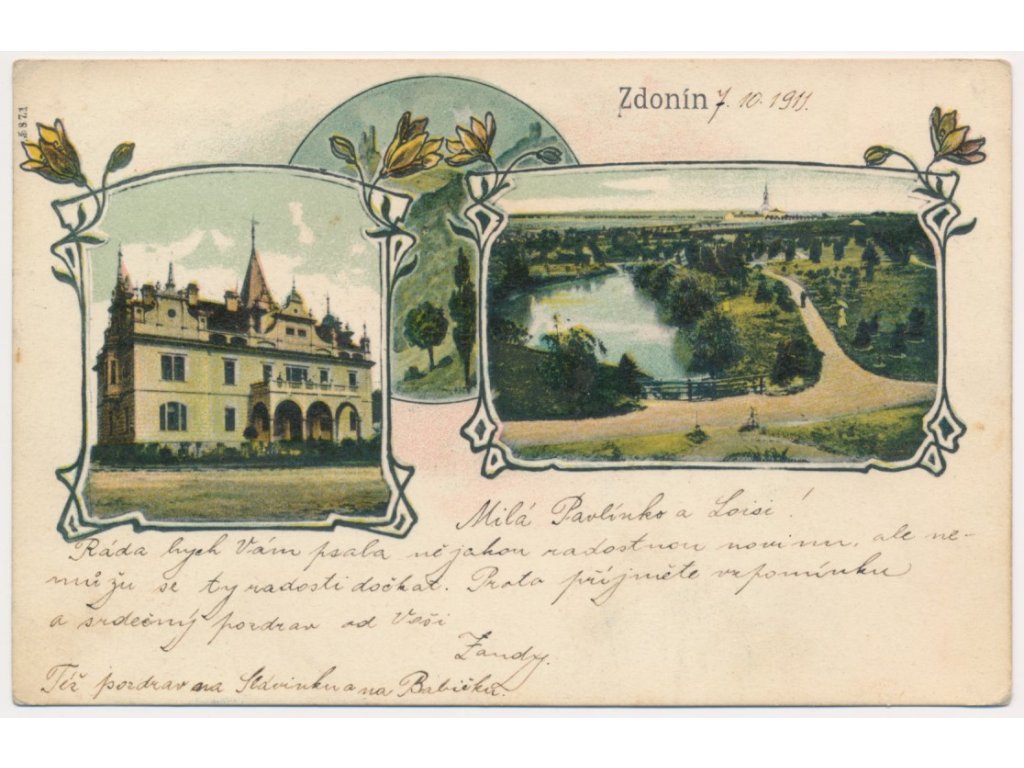 Zdonín 7. 10. 1911.
Milá Pavlínko a Loisi!
Ráda bych Vám psala nějakou radostnou novinu, ale ne-
můžu se ty radosti dočkat. Proto přijměte vzpomínku
a srdečný pozdrav od Vaší
Též pozdrav na Slávinku a na Babičku.